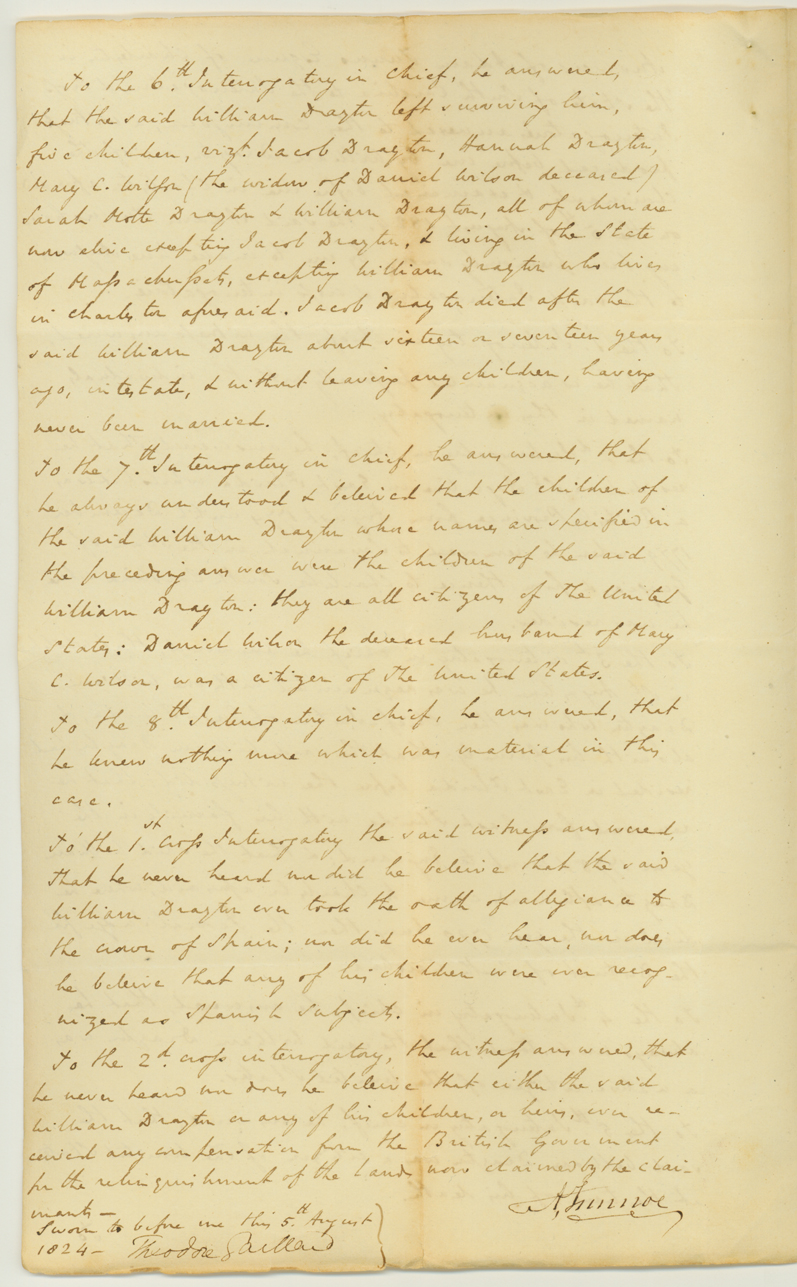 To the 6.th Interrogatory in chief, he answered,
that the said William Drayton left surviving him,
five children, vizt. Jacob Drayton, Hannah Drayton,
Mary C. Wilson (the widow of Daniel Wilson deceased)
Sarah Motte Drayton & William Drayton, all of whom are
now alive excepting Jacob Drayton, & living in the State
of Massachussets, excepting William Drayton who lives
in Charleston aforesaid. Jacob Drayton died after the
said William Drayton about sixteen or seventeen years
ago, intestate, & without leaving any children, having
never been married.
To the 7.th Interrogatory in chief, he answered, that
he always understood & beleived that the children of
the said William Drayton whose names are specified in
the preceding answer were the children of the said
William Drayton: they are all citizens of the United
States: Daniel Wilson the deceased husband of Mary
C. Wilson, was a citizen of the United States.
To the 8.th Interrogatory in chief, he answered, that
he knew nothing more which was material in this
case.
To the 1.st Cross Interrogatory the said witness answered,
that he never heard nor did he beleive that the said
William Drayton ever took the oath of allegiance to
the crown of Spain; nor did he ever hear, nor does
he beleive that any of his children were ever recog-
nized as Spanish subjects.
To the 2.d cross interrogatory, the witness answered, that
he never heard nor does he beleive that either the said
William Drayton or any of his children, or heirs, ever re-
ceived any compensation from the British Government
for the relinquishment of the lands now claimed by the clai-
mants—
Sworn to before me this 5.th August
1824— Theodore Gaillard